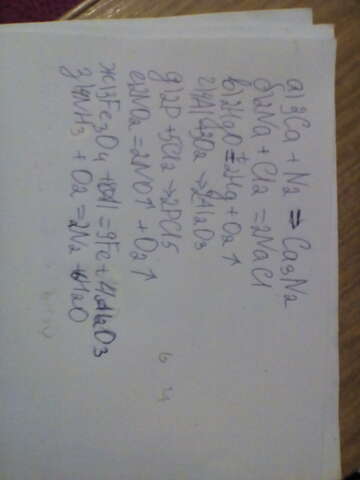 а) 3Ca + N2 = Ca3N2
б) 2Na + Cl2 = 2NaCl
в) 2HgO = 2Hg + O2↑
г) 4Al + 3O2 → 2Al2O3
д) 2P + 5Cl2 → 2PCl5
е) 2NO2 = 2NO↑ + O2↑
ж) 3Fe3O4 + 8Al = 9Fe + 4Al2O3
з) 4NH3 + O2 = 2N2 6H2O